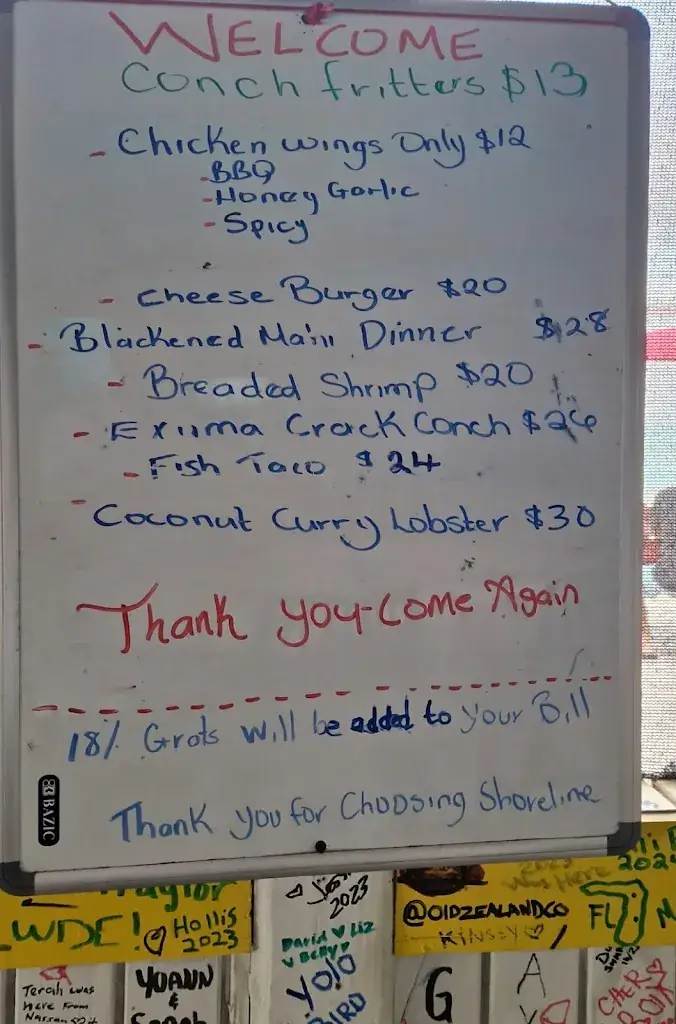 WELCOME
Conch fritters $13
- Chicken wings Only $12
- BBQ
- Honey Garlic
- Spicy
- Cheese Burger $20
- Blackened Mahi Dinner $28
- Breaded Shrimp $20
- Exuma Crack Conch $26
- Fish Taco $24
- Coconut Curry Lobster $30
Thank you-come Again
18% Grats will be added to your Bill
Thank you for Choosing Shoreline
BAZIC
LWDE! Hollis
2023
2023
David ♥ Liz
YOLO
BIRD
2024
was Here
@OIDZEALANDCO
KINSEY ♡
FL
Terah was
Here From
YOANN
&
Sarah
G
A